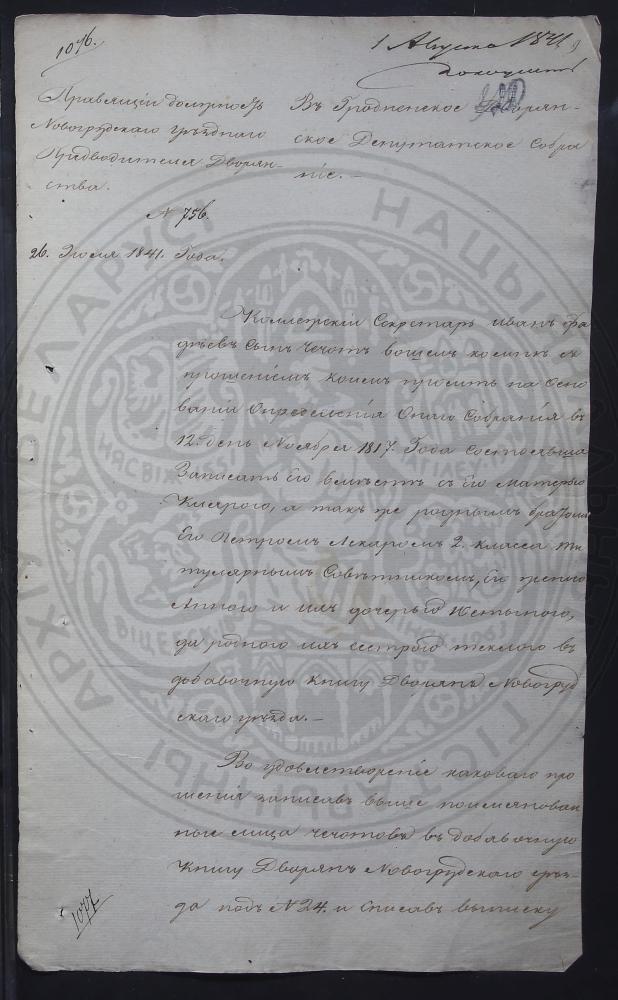 1076.
1 Августа 1841
Правящій должность
Новогрудскаго уѣзднаго
Предводителя Дворян-
ства.
№ 756.
26. Іюля 1841. Года.
Въ Гродненское Дворян-
ское Депутатское Собра
ніе.-
Коллежскій Секретарь Иванъ Фа
дѣевъ Сынъ Чечотъ вошелъ ко мнѣ съ
прошеніемъ коимъ проситъ на Осно
ваніи Опредѣленія Онаго Собранія въ
12. день Ноября 1817. Года Состоявша
Записать Его вмѣстѣ съ Его Матерью
Кларою, а такъ же роднымъ братомъ
Его Петромъ Лекаремъ 2. класса Ти
тулярнымъ Совѣтникомъ, Его женою
Анною и ихъ дочерью
да родною ихъ сестрою Теклою въ
добавочную Книгу Дворянъ Новогруд
скаго уѣзда.-
Во удовлетвореніе каковаго про
шенія записавъ выше поимянован
ные лица Чечотовъ въ добавочную
Книгу Дворянъ Новогрудскаго уѣз-
да подъ №24. и Списавъ выписку
1077